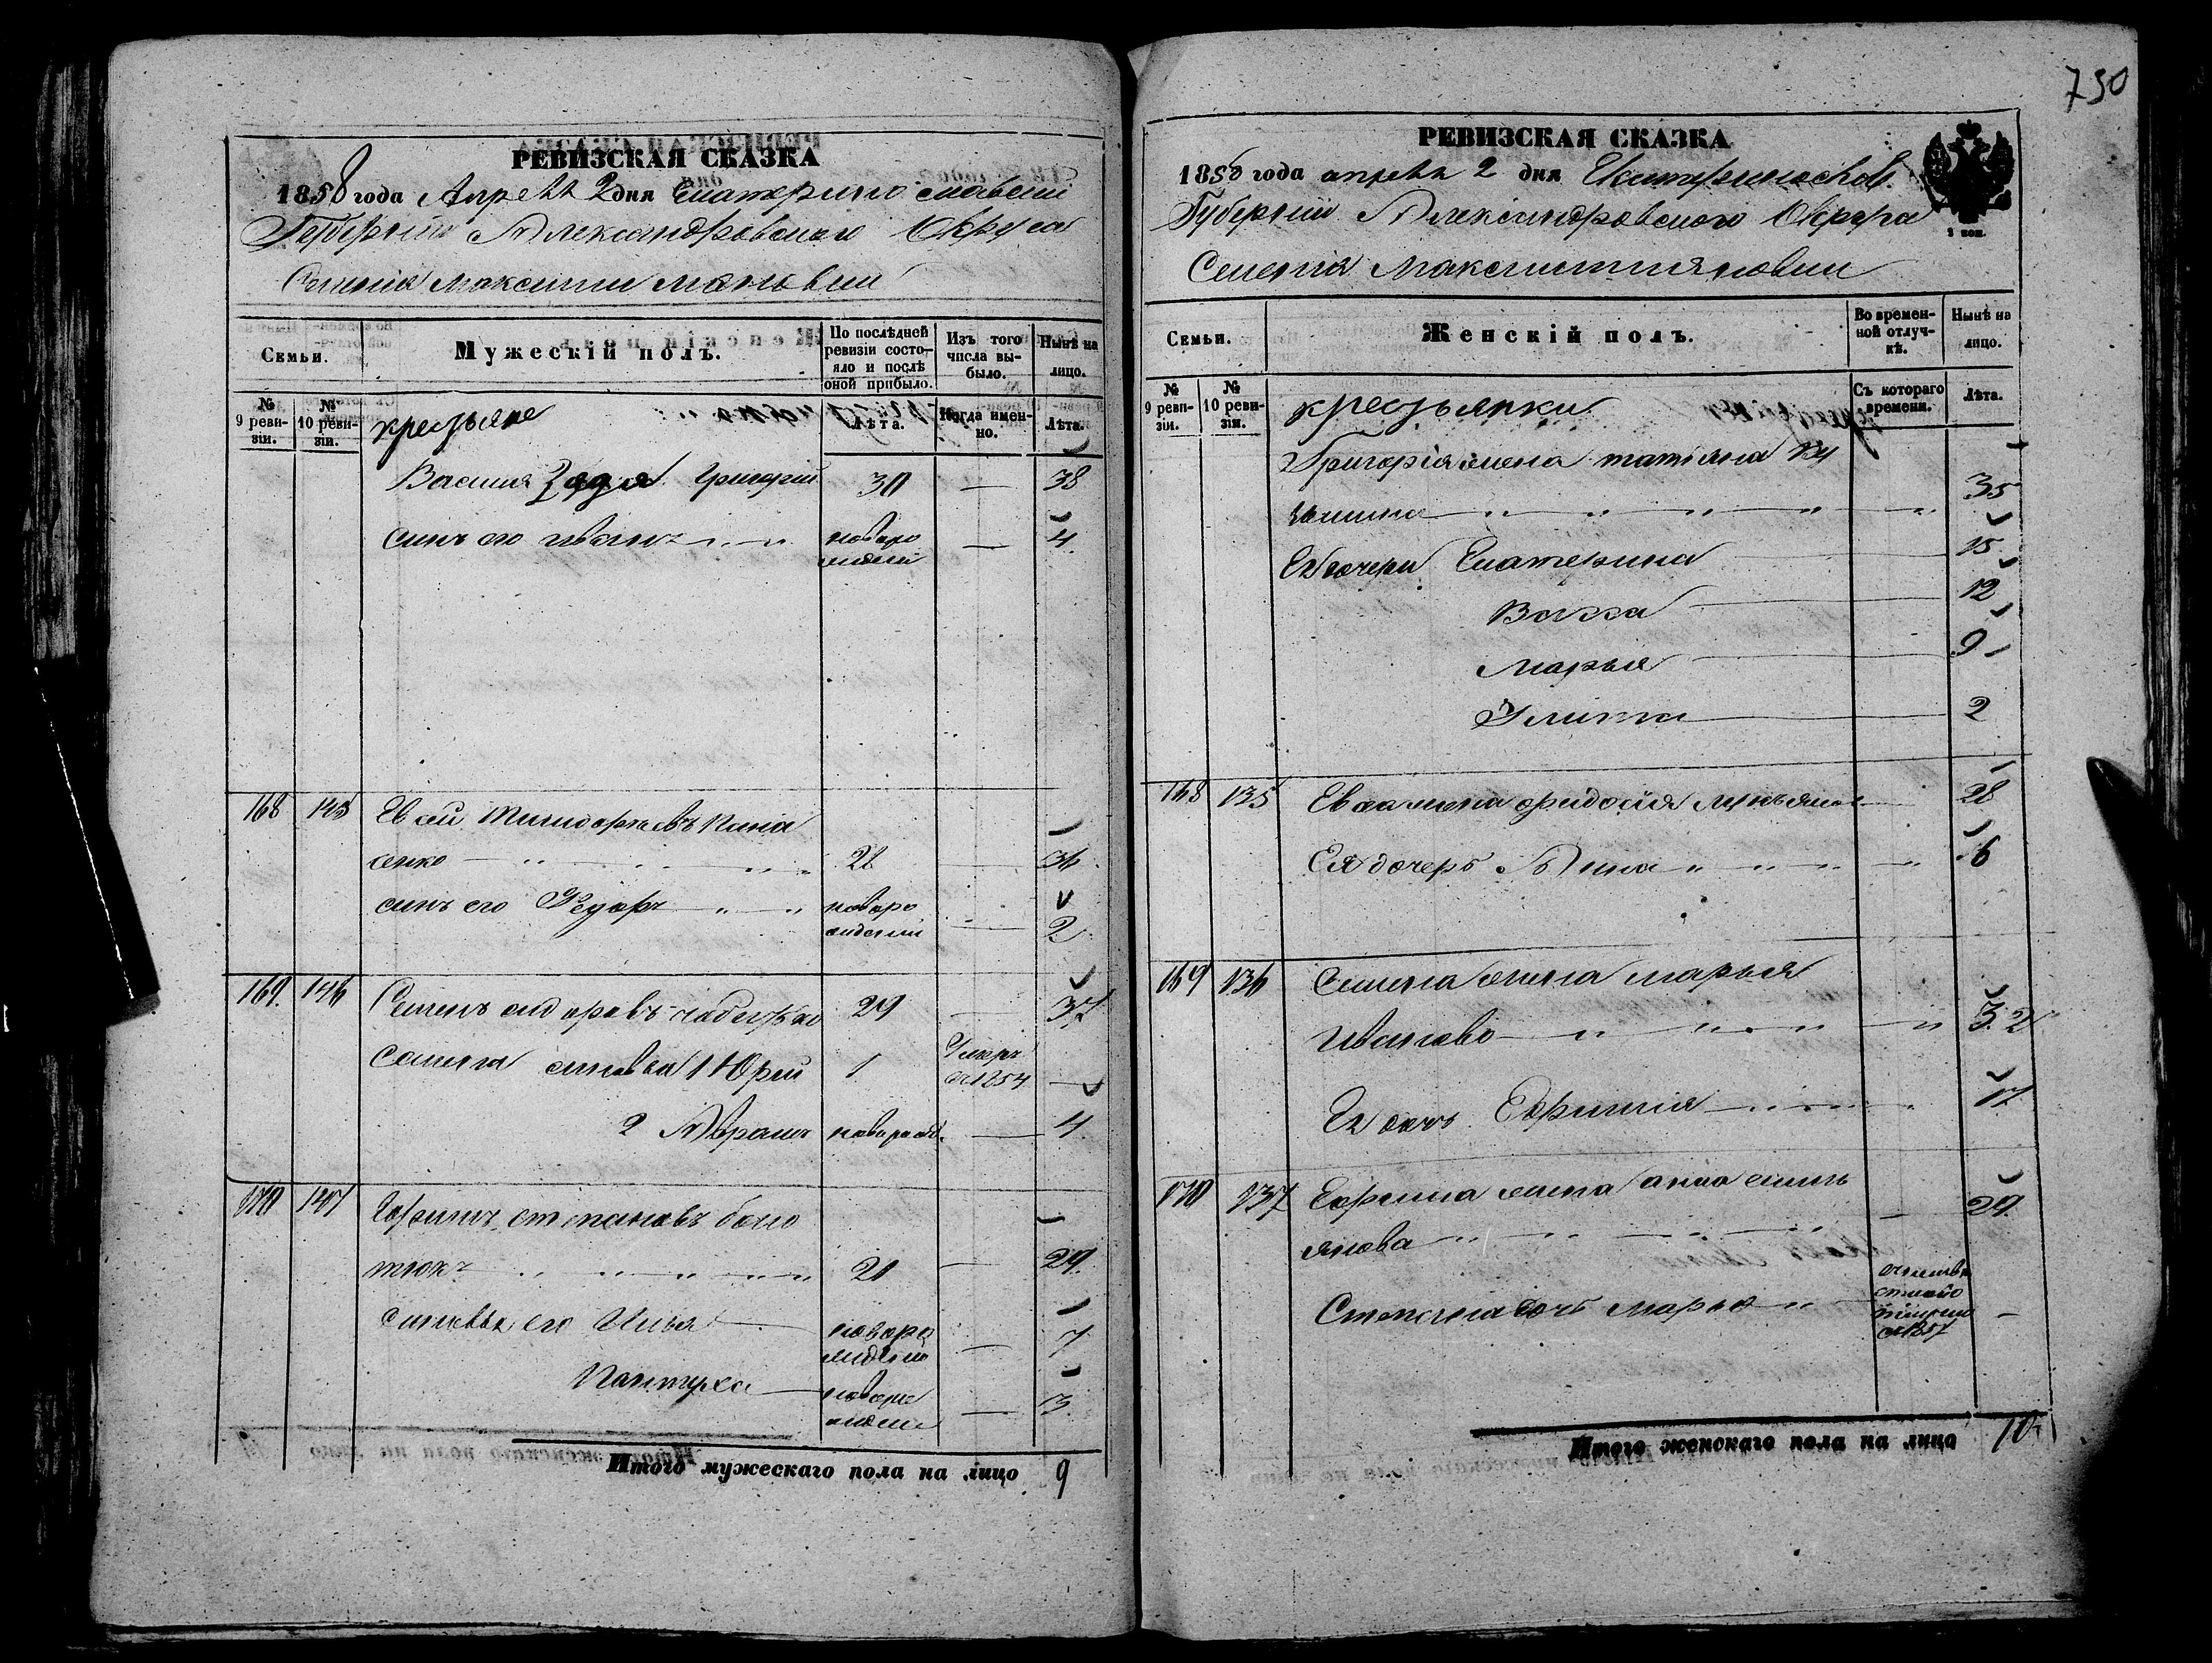 РЕВИЗСКАЯ СКАЗКА
1858 года Апреля 2 дня Екатеринославской
Губернии Александровского Округа
Селения Максимилиановки
Семьи.
Мужескій полъ.
По послѣдней ревизіи состояло и послѣ оной прибыло.
Изъ того числа выбыло.
Нынѣ на лицо.
№ 9 ревизіи.
№ 10 ревизіи.
крестьяне
Лѣта.
Когда именно.
Лѣта.
Василия дядя Григорий 30 — 38
синъ его Иванъ новорожденій — 4
168 145 Евсей Тимофеевъ Пана
сенко 28 — 36
синъ его Федоръ новорожденій — 2
169 146 Семенъ сидоровъ 29 — 37
Семена синовья 1 Юрий 1 Умеръ въ 1854 —
2 Абрамъ новорожд. — 4
170 147 Ефимъ степановъ
21 — 29
синовья его Илья новорожденій — 7
Пантуха новорожденій — 3
Итого мужескаго пола на лицо 9
750
РЕВИЗСКАЯ СКАЗКА
1858 года апреля 2 дня Екатеринославской
Губернии Александровского Округа
Селения Максимилияновки
Семьи.
Женскій полъ.
Во временной отлучкѣ.
Нынѣ на лицо.
№ 9 ревизіи.
№ 10 ревизіи.
крестьянки
Съ котораго времени.
Лѣта.
Григорія жена татіяна
35
Ея дочери Екатерина 15
Васса 12
Марья 9
Улита 2
168 135 Евсея жена фидосия 28
Ея дочеръ Анна 6
169 136 Семена жена марья
Иванова 32
Ея дочъ Ефимия 17
170 137 Ефима жена анна емил
янова — 29
Степана дочъ марья
1857 —
Итого женскаго пола на лицо 10